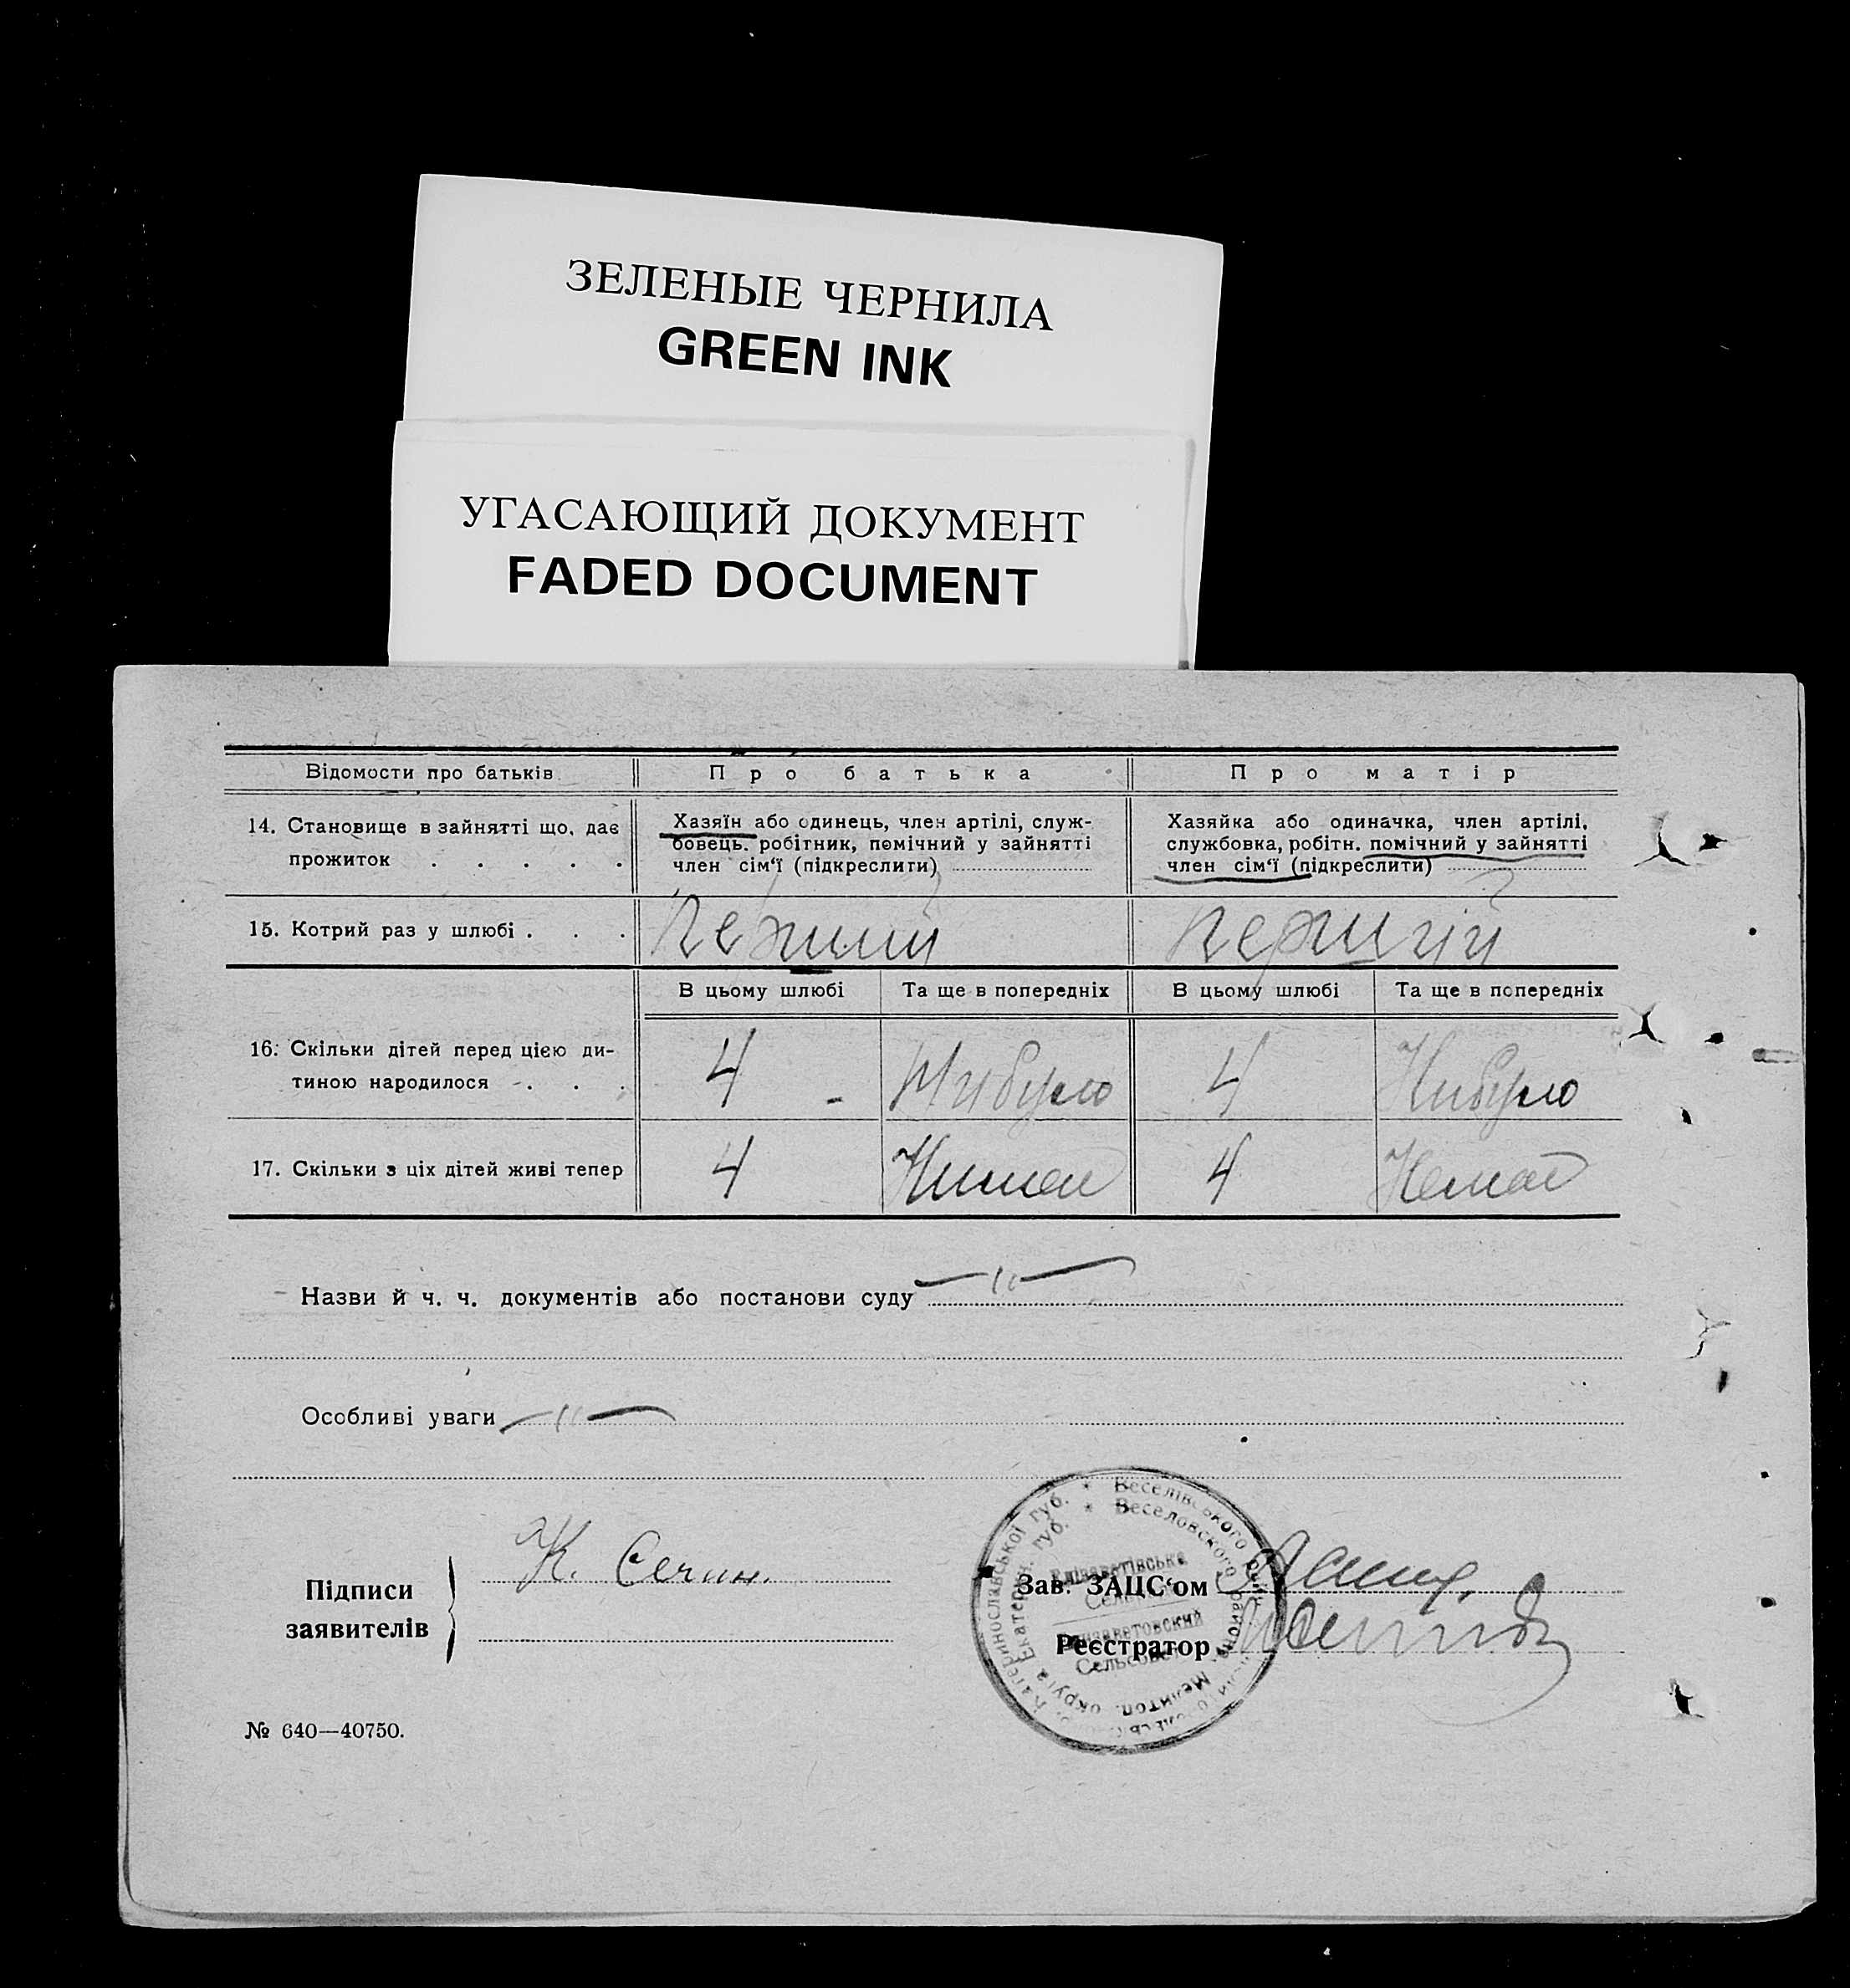 ЗЕЛЕНЫЕ ЧЕРНИЛА
GREEN INK
УГАСАЮЩИЙ ДОКУМЕНТ
FADED DOCUMENT
Відомости про батьків
Про батька
Про матір
14. Становище в зайнятті що, дає
прожиток . . . . .
Хазяїн або одинець, член артілі, служ-
бовець. робітник, помічний у зайнятті
член сім‘ї (підкреслити)
Хазяйка або одиначка, член артілі,
службовка, робітн. помічний у зайнятті
член сім‘ї (підкреслити)
15. Котрий раз у шлюбі . . .
Перший
Перший
В цьому шлюбі
Та ще в попередніх
В цьому шлюбі
Та ще в попередніх
16. Скільки дітей перед цією ди-
тиною народилося . . .
4 -
Нибуло
4
Нибуло
17. Скільки з ціх дітей живі тепер
4
Нимає
4
Немає
Назви й ч. ч. документів або постанови суду —〃—
Особливі уваги —〃—
Підписи
заявителів
К. Сечин.
Зав. ЗАЦС‘ом
Реєстратор
Катеринославської губ. * Веселівського рай.
округа Екатерин. губ. * Веселовского района Мелитоп.
Єлізаветівська
Сельрада
Елизаветовский
Сельсовет
№ 640—40750.